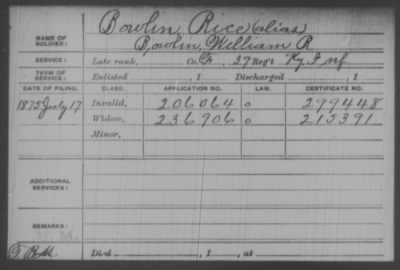 NAME OF SOLDIER: Bowlin, Rice (alias)
Bowlin, William R
SERVICE: Late rank, Co. G, 27 Reg't Ky Inf
TERM OF SERVICE: Enlisted , 1 Discharged , 1
DATE OF FILING. CLASS. APPLICATION NO. LAW. CERTIFICATE NO.
1875 July 17 Invalid, 206064 0 299448
Widow, 236906 0 213391
Minor,
ADDITIONAL SERVICES:
REMARKS:
Died , 1 , at